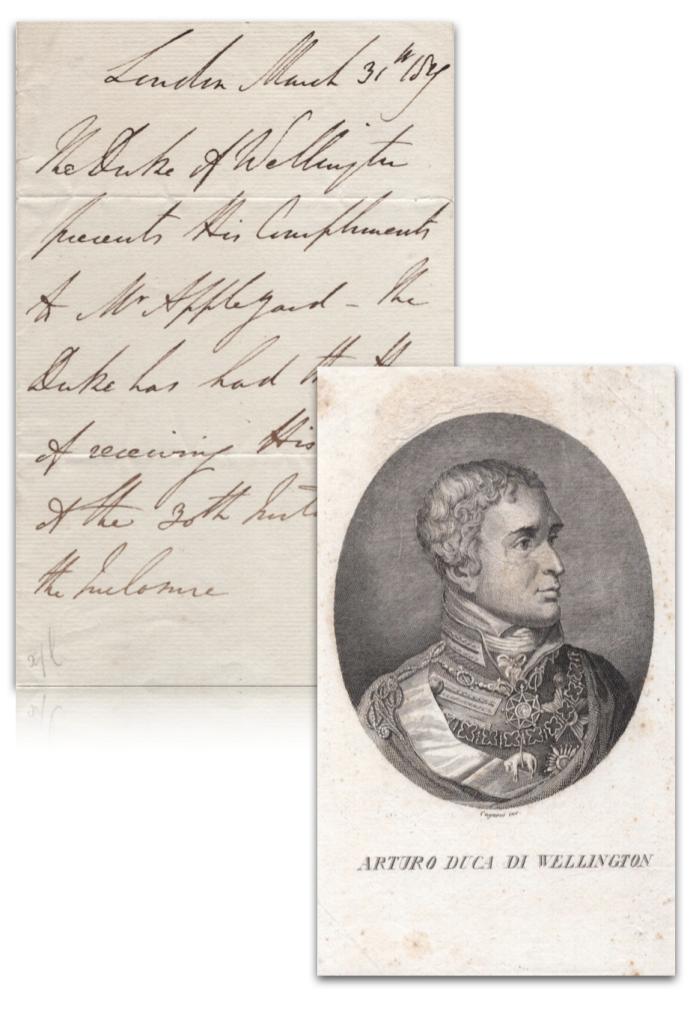 London March 31st
The Duke of Wellington
presents His Compliments
to Mr Appleyard – The
Duke has had
of receiving His
of the 30th Inst
the Inclosure
ARTURO DUCA DI WELLINGTON